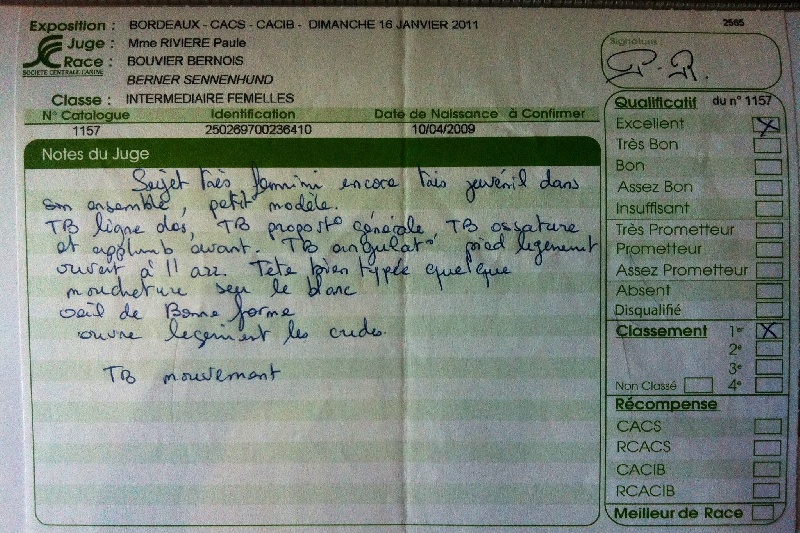 Exposition : BORDEAUX - CACS - CACIB - DIMANCHE 16 JANVIER 2011
2565
Juge : Mme RIVIERE Paule
Race : BOUVIER BERNOIS
SOCIETE CENTRALE CANINE
BERNER SENNENHUND
Classe : INTERMEDIAIRE FEMELLES
N° Catalogue Identification Date de Naissance à Confirmer
1157 250269700236410 10/04/2009
Notes du Juge
Sujet très féminin encore très juvénil dans
son ensemble, petit modèle.
TB ligne dos, TB propost° générale, TB ossature
et applomb avant. TB angulat° pied légerement
ouvert à l'arr. Tête bien typée quelque
moucheture sur le blanc
oeil de Bonne forme
ouvre legerment les
TB mouvement
Signature
P. R.
Qualificatif du n° 1157
Excellent X
Très Bon
Bon
Assez Bon
Insuffisant
Très Prometteur
Prometteur
Assez Prometteur
Absent
Disqualifié
Classement 1er X
2e
3e
Non Classé 4e
Récompense
CACS
RCACS
CACIB
RCACIB
Meilleur de Race